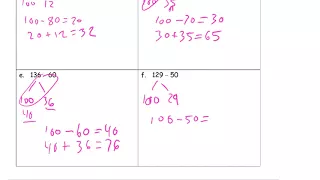 100 12
100-80=20
20+12=32
35
100-70=30
30+35=65
e. 136 - 60
100 36
40
100-60=40
40+36=76
f. 129 - 50
100 29
100-50=